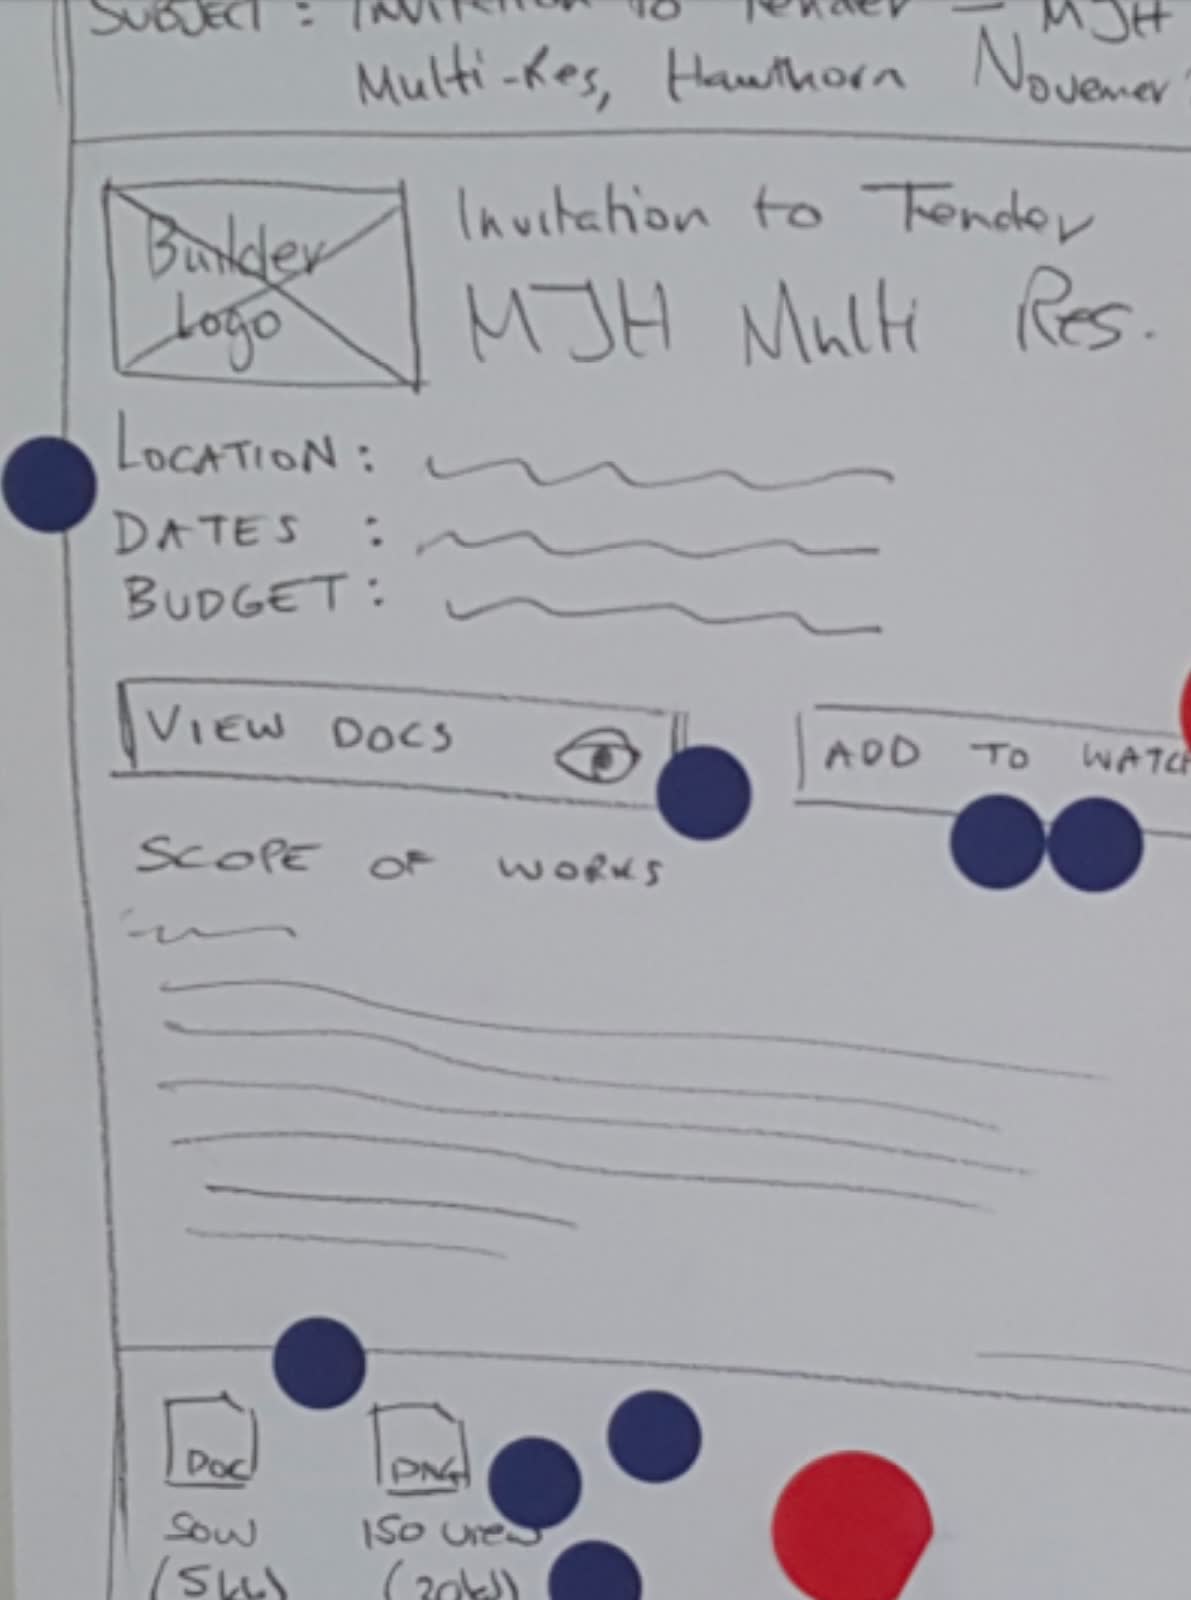 SUBJECT : Invitation to Tender — MJH
Multi-Res, Hawthorn Novemer
Builder
Logo
Invitation to Tender
MJH Multi Res.
LOCATION :
DATES :
BUDGET :
VIEW DOCS
ADD TO WATCH
SCOPE OF WORKS
DOC
PNG
SOW
ISO view
(5kb)
(20kb)